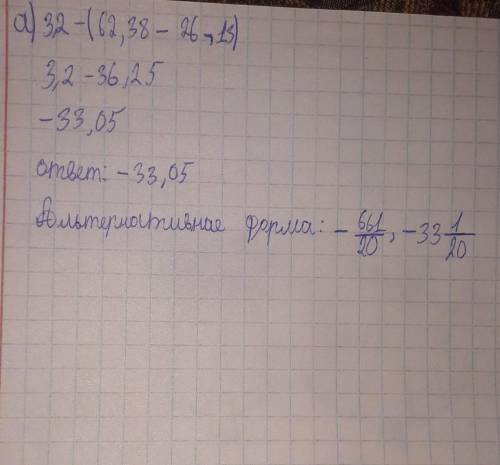 а) 3,2 - (62,38 - 26,13)
3,2 - 36,25
- 33,05
ответ: - 33,05
Альтернативная форма: - 661/20, - 33 1/20